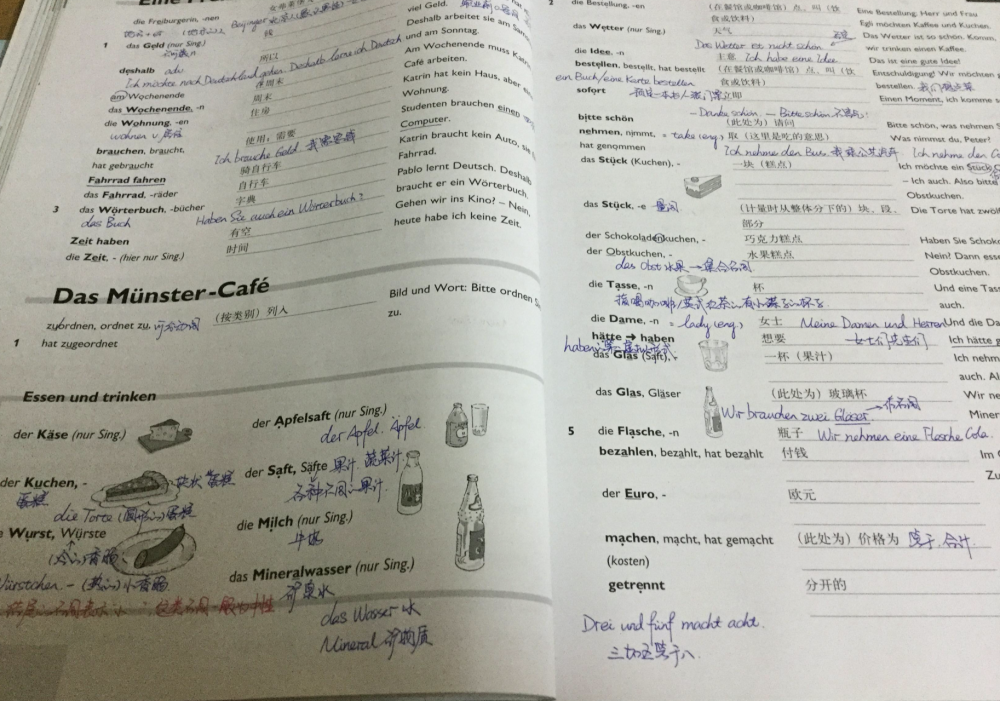 die Freiburgerin, -nen
1 das Geld (nur Sing.) 钱
deshalb adv. 所以
Ich möchte nach Deutschland gehen. Deshalb lerne ich Deutsch
am Wochenende 在周末
das Wochenende, -n 周末
die Wohnung, -en 住房
wohnen v.
brauchen, braucht, 使用,需要
hat gebraucht Ich brauche Geld. 我需要钱
Fahrrad fahren 骑自行车
das Fahrrad, -räder 自行车
3 das Wörterbuch, -bücher 字典
das Buch Haben Sie auch ein Wörterbuch?
Zeit haben 有空
die Zeit, - (hier nur Sing.) 时间
viel Geld.
Deshalb arbeitet sie am Sams
und am Sonntag.
Am Wochenende muss Katri
Café arbeiten.
Katrin hat kein Haus, aber ein
Wohnung.
Studenten brauchen einen
Computer.
Katrin braucht kein Auto, sie
Fahrrad.
Pablo lernt Deutsch. Deshalb
braucht er ein Wörterbuch.
Gehen wir ins Kino? – Nein,
heute habe ich keine Zeit.
Das Münster-Café
zuordnen, ordnet zu, 可分动词 (按类别)列入
1 hat zugeordnet
Bild und Wort: Bitte ordnen S
zu.
Essen und trinken
der Käse (nur Sing.)
der Kuchen, - 块状蛋糕
蛋糕
die Torte (圆形的)蛋糕
Wurst, Würste
(冷的)香肠
Würstchen, - (热的)小香肠
der Apfelsaft (nur Sing.)
der Apfel. Äpfel.
der Saft, Säfte 果汁 蔬菜汁
各种不同的果汁
die Milch (nur Sing.)
牛奶
das Mineralwasser (nur Sing.)
矿泉水
das Wasser 水
Mineral 矿物质
2 die Bestellung, -en (在餐馆或咖啡馆)点,叫(饮
食或饮料)
das Wetter (nur Sing.) 天气
Das Wetter ist nicht schön.
die Idee, -n 主意 Ich habe eine Idee.
bestellen, bestellt, hat bestellt (在餐馆或咖啡馆)点、叫(饮
ein Buch/eine Karte bestellen 食或饮料)
sofort 立即
- Danke schön. - Bitte schön 不客气!
bitte schön (此处为)请问
nehmen, nimmt, = take (eng) 取(这里是吃的意思)
hat genommen Ich nehme den Bus. 我乘公共汽车
das Stück (Kuchen), - 一块(糕点)
das Stück, -e 量词 (计量时从整体分下的)块、段、
部分
der Schokoladenkuchen, - 巧克力糕点
der Obstkuchen, - 水果糕点
das Obst 水果 → 集合名词
die Tasse, -n 杯
die Dame, -n = lady (eng) 女士 Meine Damen und Herren
hätte → haben 想要 女士们先生们
das Glas (Saft), - 一杯(果汁)
das Glas, Gläser (此处为)玻璃杯
Wir brauchen zwei Gläser
5 die Flasche, -n 瓶子 Wir nehmen eine Flasche Cola.
bezahlen, bezahlt, hat bezahlt 付钱
der Euro, - 欧元
machen, macht, hat gemacht (此处为)价格为 等于. 合计.
(kosten)
getrennt 分开的
Drei und fünf macht acht.
三加五等于八.
Eine Bestellung, Herr und Frau
Egli möchten Kaffee und Kuchen.
Das Wetter ist so schön. Komm,
wir trinken einen Kaffee.
Das ist eine gute Idee!
Entschuldigung! Wir möchten
bestellen.
Einen Moment, ich komme
Bitte schön, was nehmen
Was nimmst du, Peter?
Ich nehme den
Ich möchte ein Stück
– Ich auch. Also bitte
Obstkuchen.
Die Torte hat zwöl
Haben Sie Schoko
Nein! Dann esse
Obstkuchen.
Und eine Tass
auch.
Und die Da
Ich hätte g
Ich nehm
auch. Al
Wir ne
Miner
Im
Zu